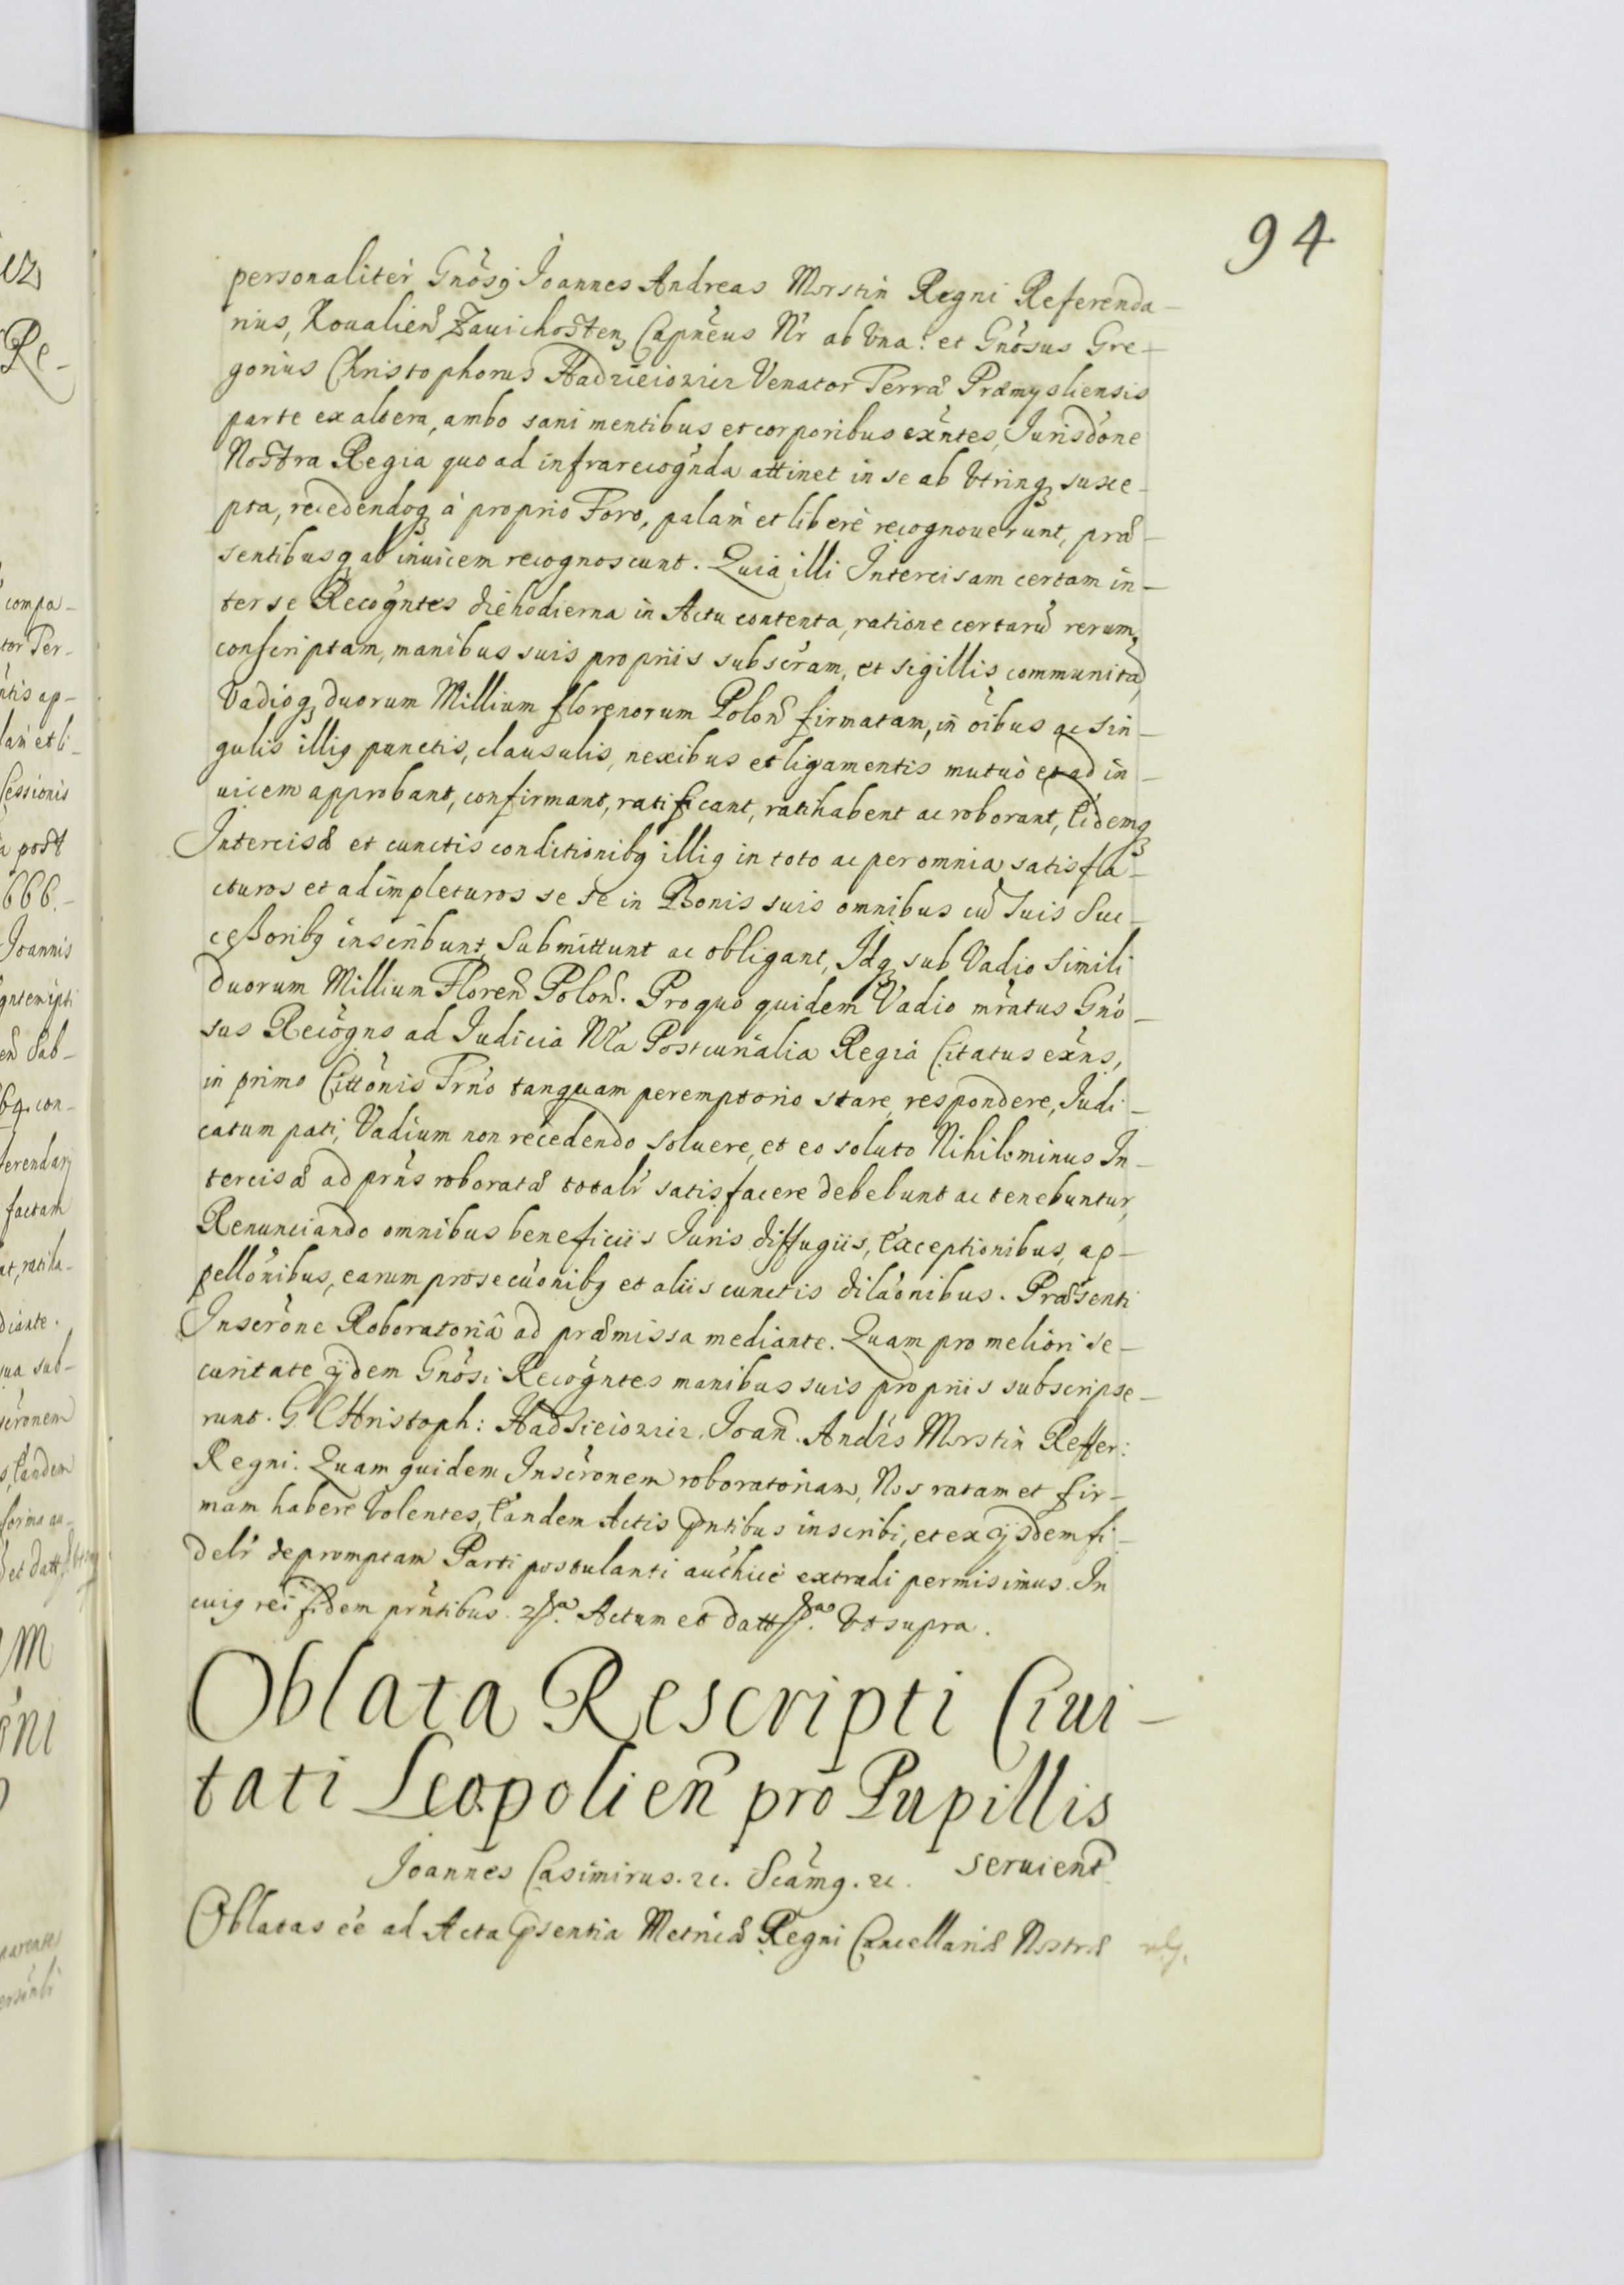 94
personaliter Gnosq Joannes Andreas Morstin Regni Referenda-
rius, Koualien Zauichosten Capneus Nr ab Vna: et Gnosus Gre-
gorius Christophorus Hadzieiozicz Venator Terræ Præmysliensis
parte ex altera, ambo sani mentibus et corporibus exntes, Jurisdone
Nostra Regia quo ad infrarecognda attinet in se ab Vtrinq susce-
pta, recedendoq à proprio Foro, palam et liberè recognouerunt, præ-
sentibusq ab inuicem recognoscunt. Quia illi Intercisam certam in-
ter se Recogntes die hodierna in Actu contenta, ratione certaru rerum,
conscriptam, manibus suis propriis subscram, et sigillis communita,
Vadioq duorum Millium florenorum Polon firmatam, in oibus ac sin-
gulis illiq punctis, clausulis, nexibus et ligamentis mutuò et ad in-
uicem approbant, confirmant, ratificant, ratihabent ac roborant, Eidemq
Intercisæ et cunctis conditionibq illiq in toto ac per omnia satisfa-
cturos et adimpleturos se se in Bonis suis omnibus cu suis Suc-
cessoribq inscribunt, Submittunt ac obligant, Idq sub Vadio simili
duorum Millium Floren Polon. Pro quo quidem Vadio mratus Gno-
sus Recogns ad Judicia Nra Postcurialia Regia Citatus exns,
in primo Cittonis Trno tanquam peremptorio stare, respondere, Judi-
catum pati, Vadium non recedendo soluere, et eo soluto Nihilominus In-
tercisæ ad prns roboratæ totalr satisfacere debebunt ac tenebuntur,
Renunciando omnibus beneficiis Juris diffugiis, Exceptionibus, ap-
pellonibus, earum prosecuonibq et aliis cunctis dilaonibus. Præsenti
Inscrone Roboratoriâ ad præmissa mediante. Quam pro meliori se-
curitate ijdem Gnosi Recogntes manibus suis propriis subscripse-
runt. G CHristoph: Hadzieiozicz, Joan. Andrs Morstin Reffer:
Regni. Quam quidem Inscronem roboratoriam, Nos ratam et fir-
mam habere Volentes, Eandem Actis pntibus inscribi, et ex ijsdem fi-
delr depromptam Parti postulanti authice extradi permisimus. In
cuiq rei fidem prntibus. Actum et datt Vt supra.
Oblata Rescripti Ciui-
tati Leopolien pro Pupillis
seruient
Joannes Casimirus. rc. Scamg. rc.
Oblatas ee ad Acta psentia Metricæ Regni Cancellariæ Nostræ